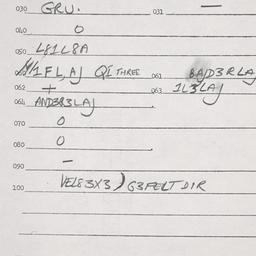 030 GRU. 031 —
040 O
050 L&1L8A
060 1FL,AJ QI THREE 061 8A/D3RLAJ
062 + 063 1L3LAJ
064 AND3&3LAJ
070 O
080 O
090 —
100 VEL83X3) G3FELTDIR